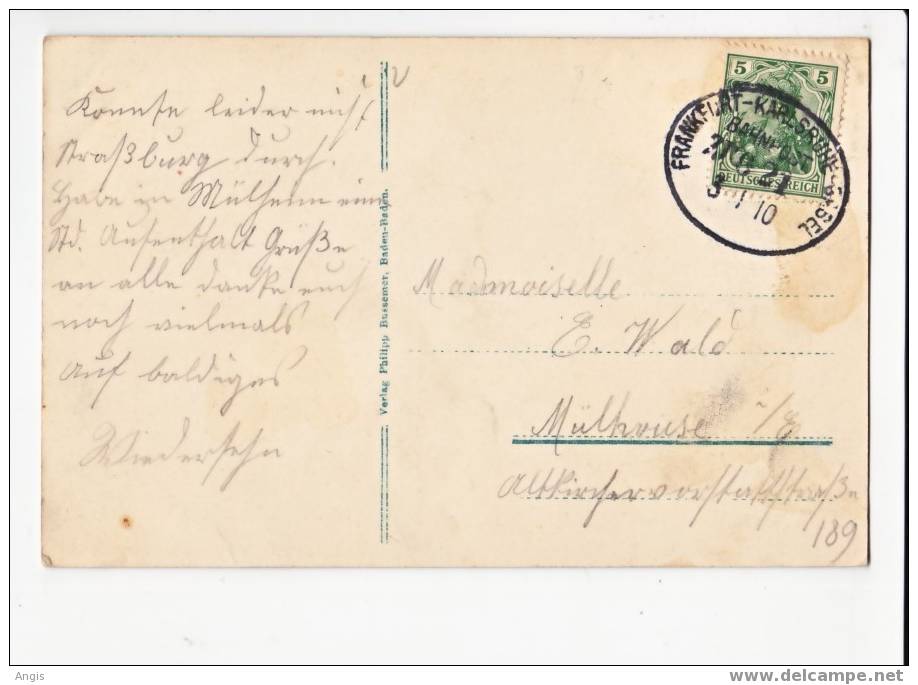 Konnte leider nicht
Straßburg durch.
Habe in Mülheim eine
Std. Aufenthalt Grüße
an alle danke euch
noch vielmals
Auf baldiges
Wiedersehn
Verlag Philipp Bussemer, Baden-Baden.
5 5
DEUTSCHES REICH
FRANKFURT-KARLSRUHE-BASEL
BAHNPOST
3 1 10
Mademoiselle
E. Wald
Mülhouse i/E
Altkirchervorstadtstraße
189
Angis
www.delcampe.net